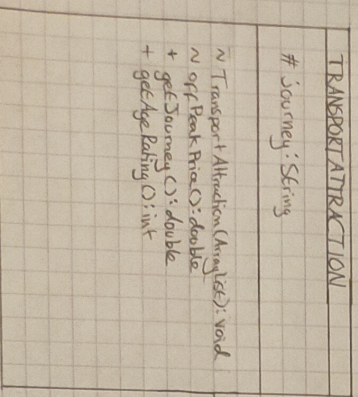 TRANSPORTATTRACTION
# journey : String
~ TransportAttraction (ArrayList) : void
~ offPeakPrice () : double
+ getJourney () : double
+ getAgeRating () : int